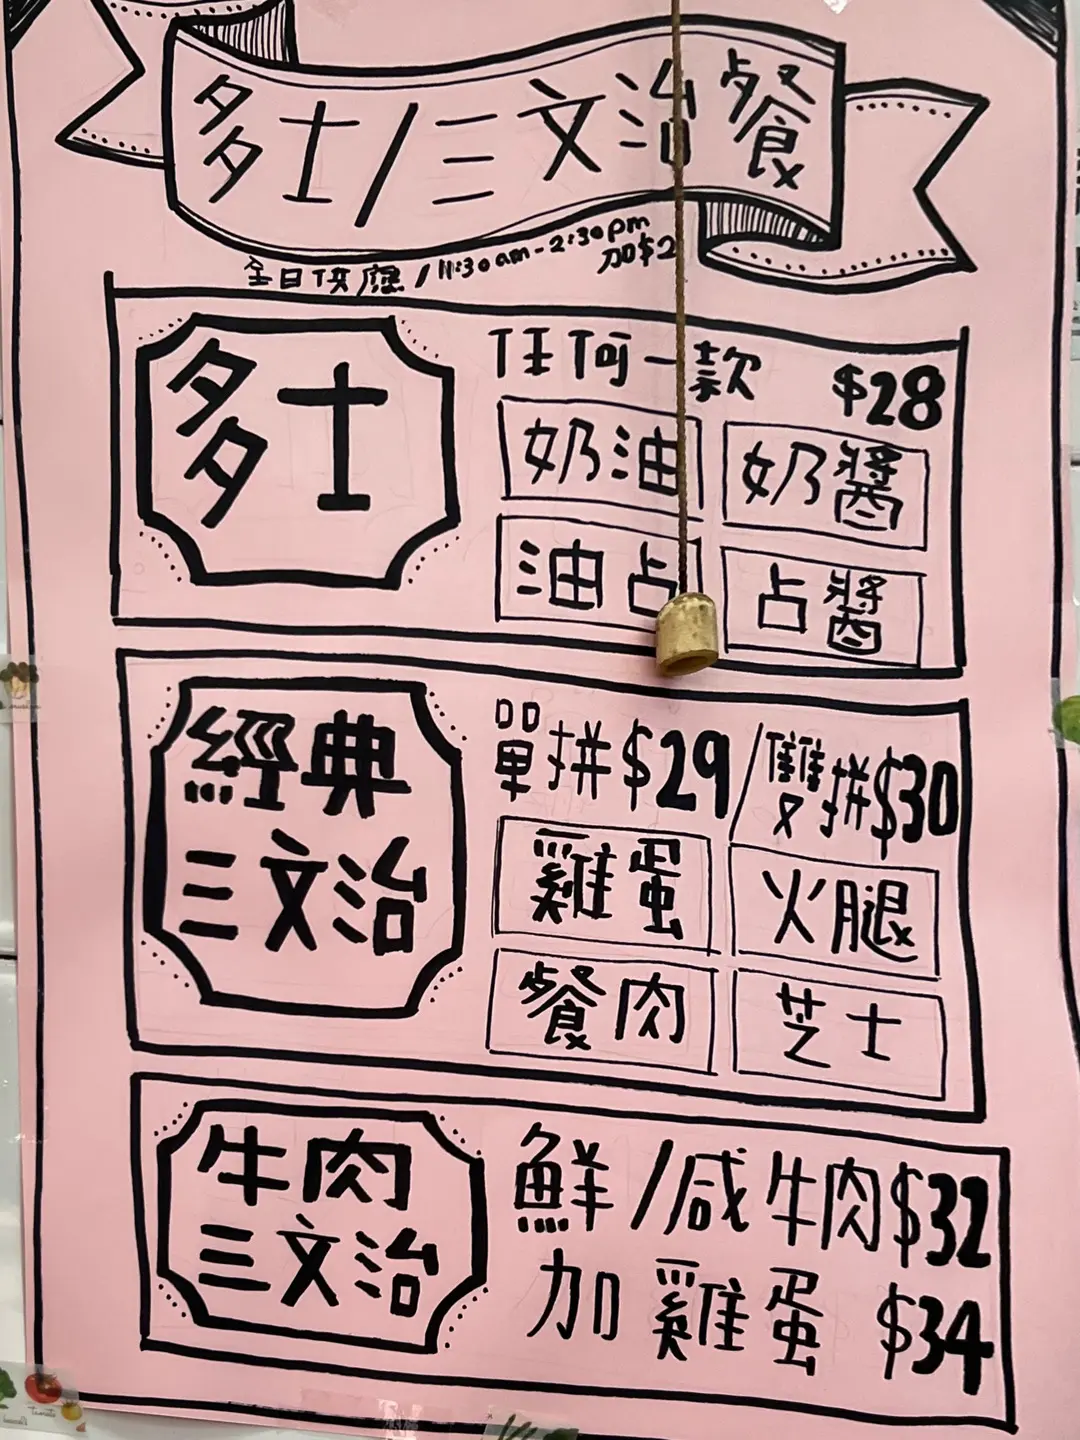 多士/三文治餐
全日供應/11:30am-2:30pm
加$2
多士
任何一款 $28
奶油 奶醬
油占 占醬
經典
三文治
單拼$29/雙拼$30
雞蛋 火腿
餐肉 芝士
牛肉
三文治
鮮/咸牛肉$32
加雞蛋 $34
Tomato